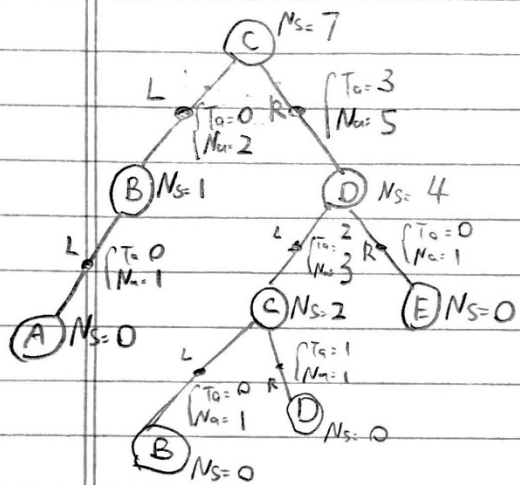 C Ns=7
L { Ta=0 Na=2
R { Ta=3 Na=5
B Ns=1
D Ns=4
L { Ta 0 Na=1
L { Ta=2 Na=3
R { Ta=0 Na=1
A Ns=0
C Ns=2
E Ns=0
L { Ta=0 Na=1
R { Ta=1 Na=1
B Ns=0
D Ns=0